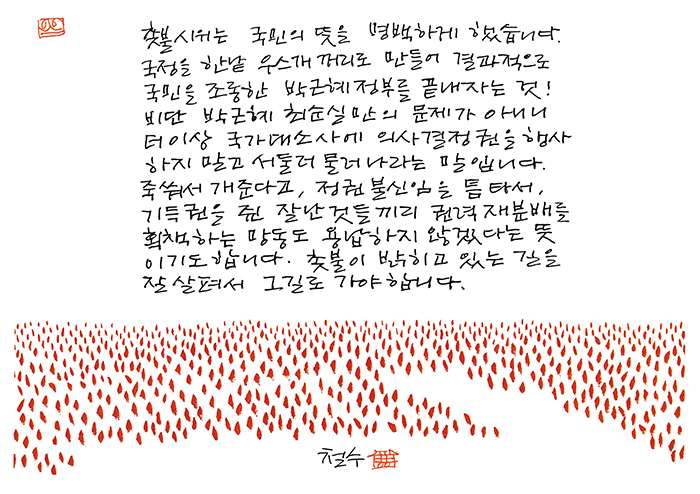 촛불시위는 국민의 뜻을 명백하게 했습니다.
국정을 한낱 우스개 꺼리로 만들어 결과적으로
국민을 조롱한 박근혜정부를 끝내자는 것!
비단 박근혜 최순실만의 문제가 아니니
더이상 국가대소사에 의사결정권을 행사
하지 말고 서둘러 물러나라는 말입니다.
죽쒀서 개준다고, 정권불신임을 틈타서,
기득권을 쥔 잘난것들끼리 권력재분배를
획책하는 망동도 용납하지 않겠다는 뜻
이기도합니다. 촛불이 밝히고 있는 길을
잘 살펴서 그길로 가야합니다.
철수